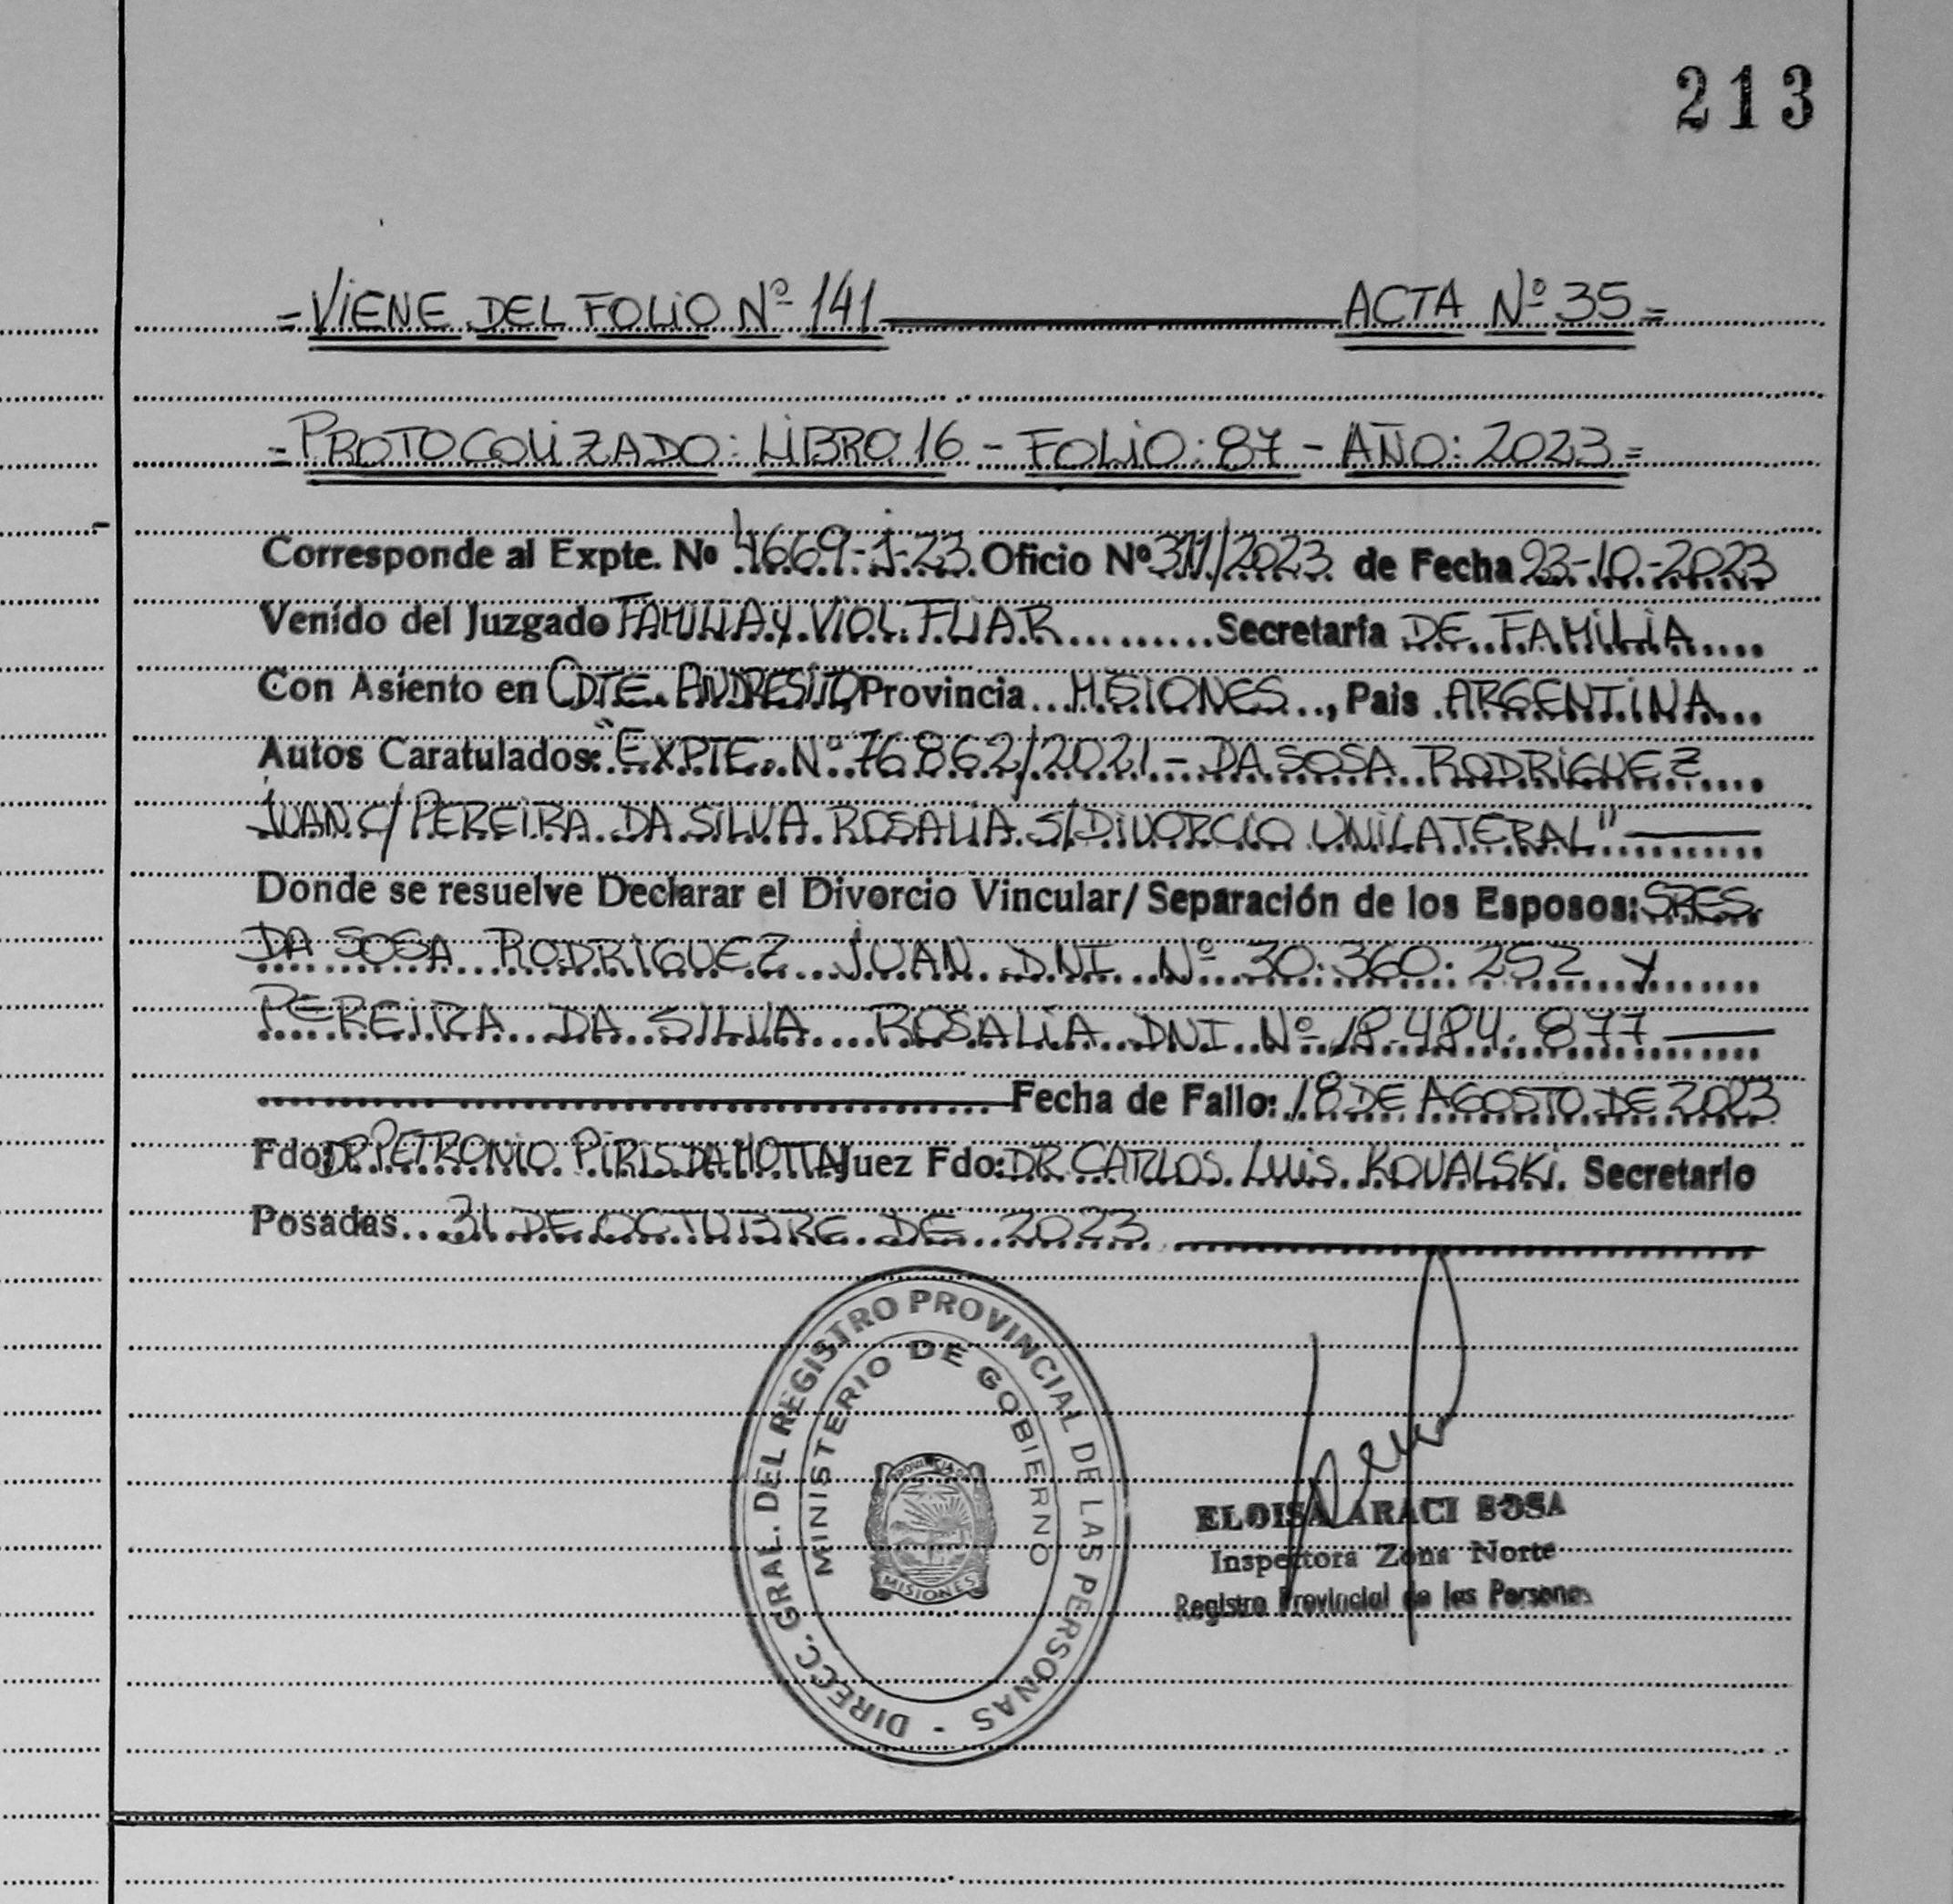 213
=VIENE DEL FOLIO Nº 141 ACTA Nº 35=
=PROTOCOLIZADO: LIBRO 16 - FOLIO: 87 - AÑO: 2023=
Corresponde al Expte. Nº 4669-J-23 Oficio Nº 311/2023 de Fecha 23-10-2023
Venido del Juzgado FAMILIA Y VIOL. FLIAR Secretaría DE FAMILIA
Con Asiento en CDTE. ANDRESITO, Provincia MISIONES, Pais ARGENTINA
Autos Caratulados: "EXPTE. Nº 76862/2021 - DA SOSA RODRIGUEZ
JUAN C/ PEREIRA DA SILVA ROSALIA S/DIVORCIO UNILATERAL"
Donde se resuelve Declarar el Divorcio Vincular/ Separación de los Esposos: SRES.
DA SOSA RODRIGUEZ JUAN DNI Nº 30.360.252 y
PEREIRA DA SILVA ROSALIA DNI Nº 877
Fecha de Fallo: 18 DE AGOSTO DE 2023
Fdo: DR PETRONIO PIRIS DA MOTTA Juez Fdo: DR. CARLOS LUIS KOVALSKI. Secretario
Posadas 31 DE OCTUBRE DE 2023
DIRECC. GRAL. DEL REGISTRO PROVINCIAL DE LAS PERSONAS -
MINISTERIO DE GOBIERNO
PROVINCIA DE
MISIONES
ELOISA ARACI SOSA
Inspectora Zona Norte
Registro Provincial de las Personas